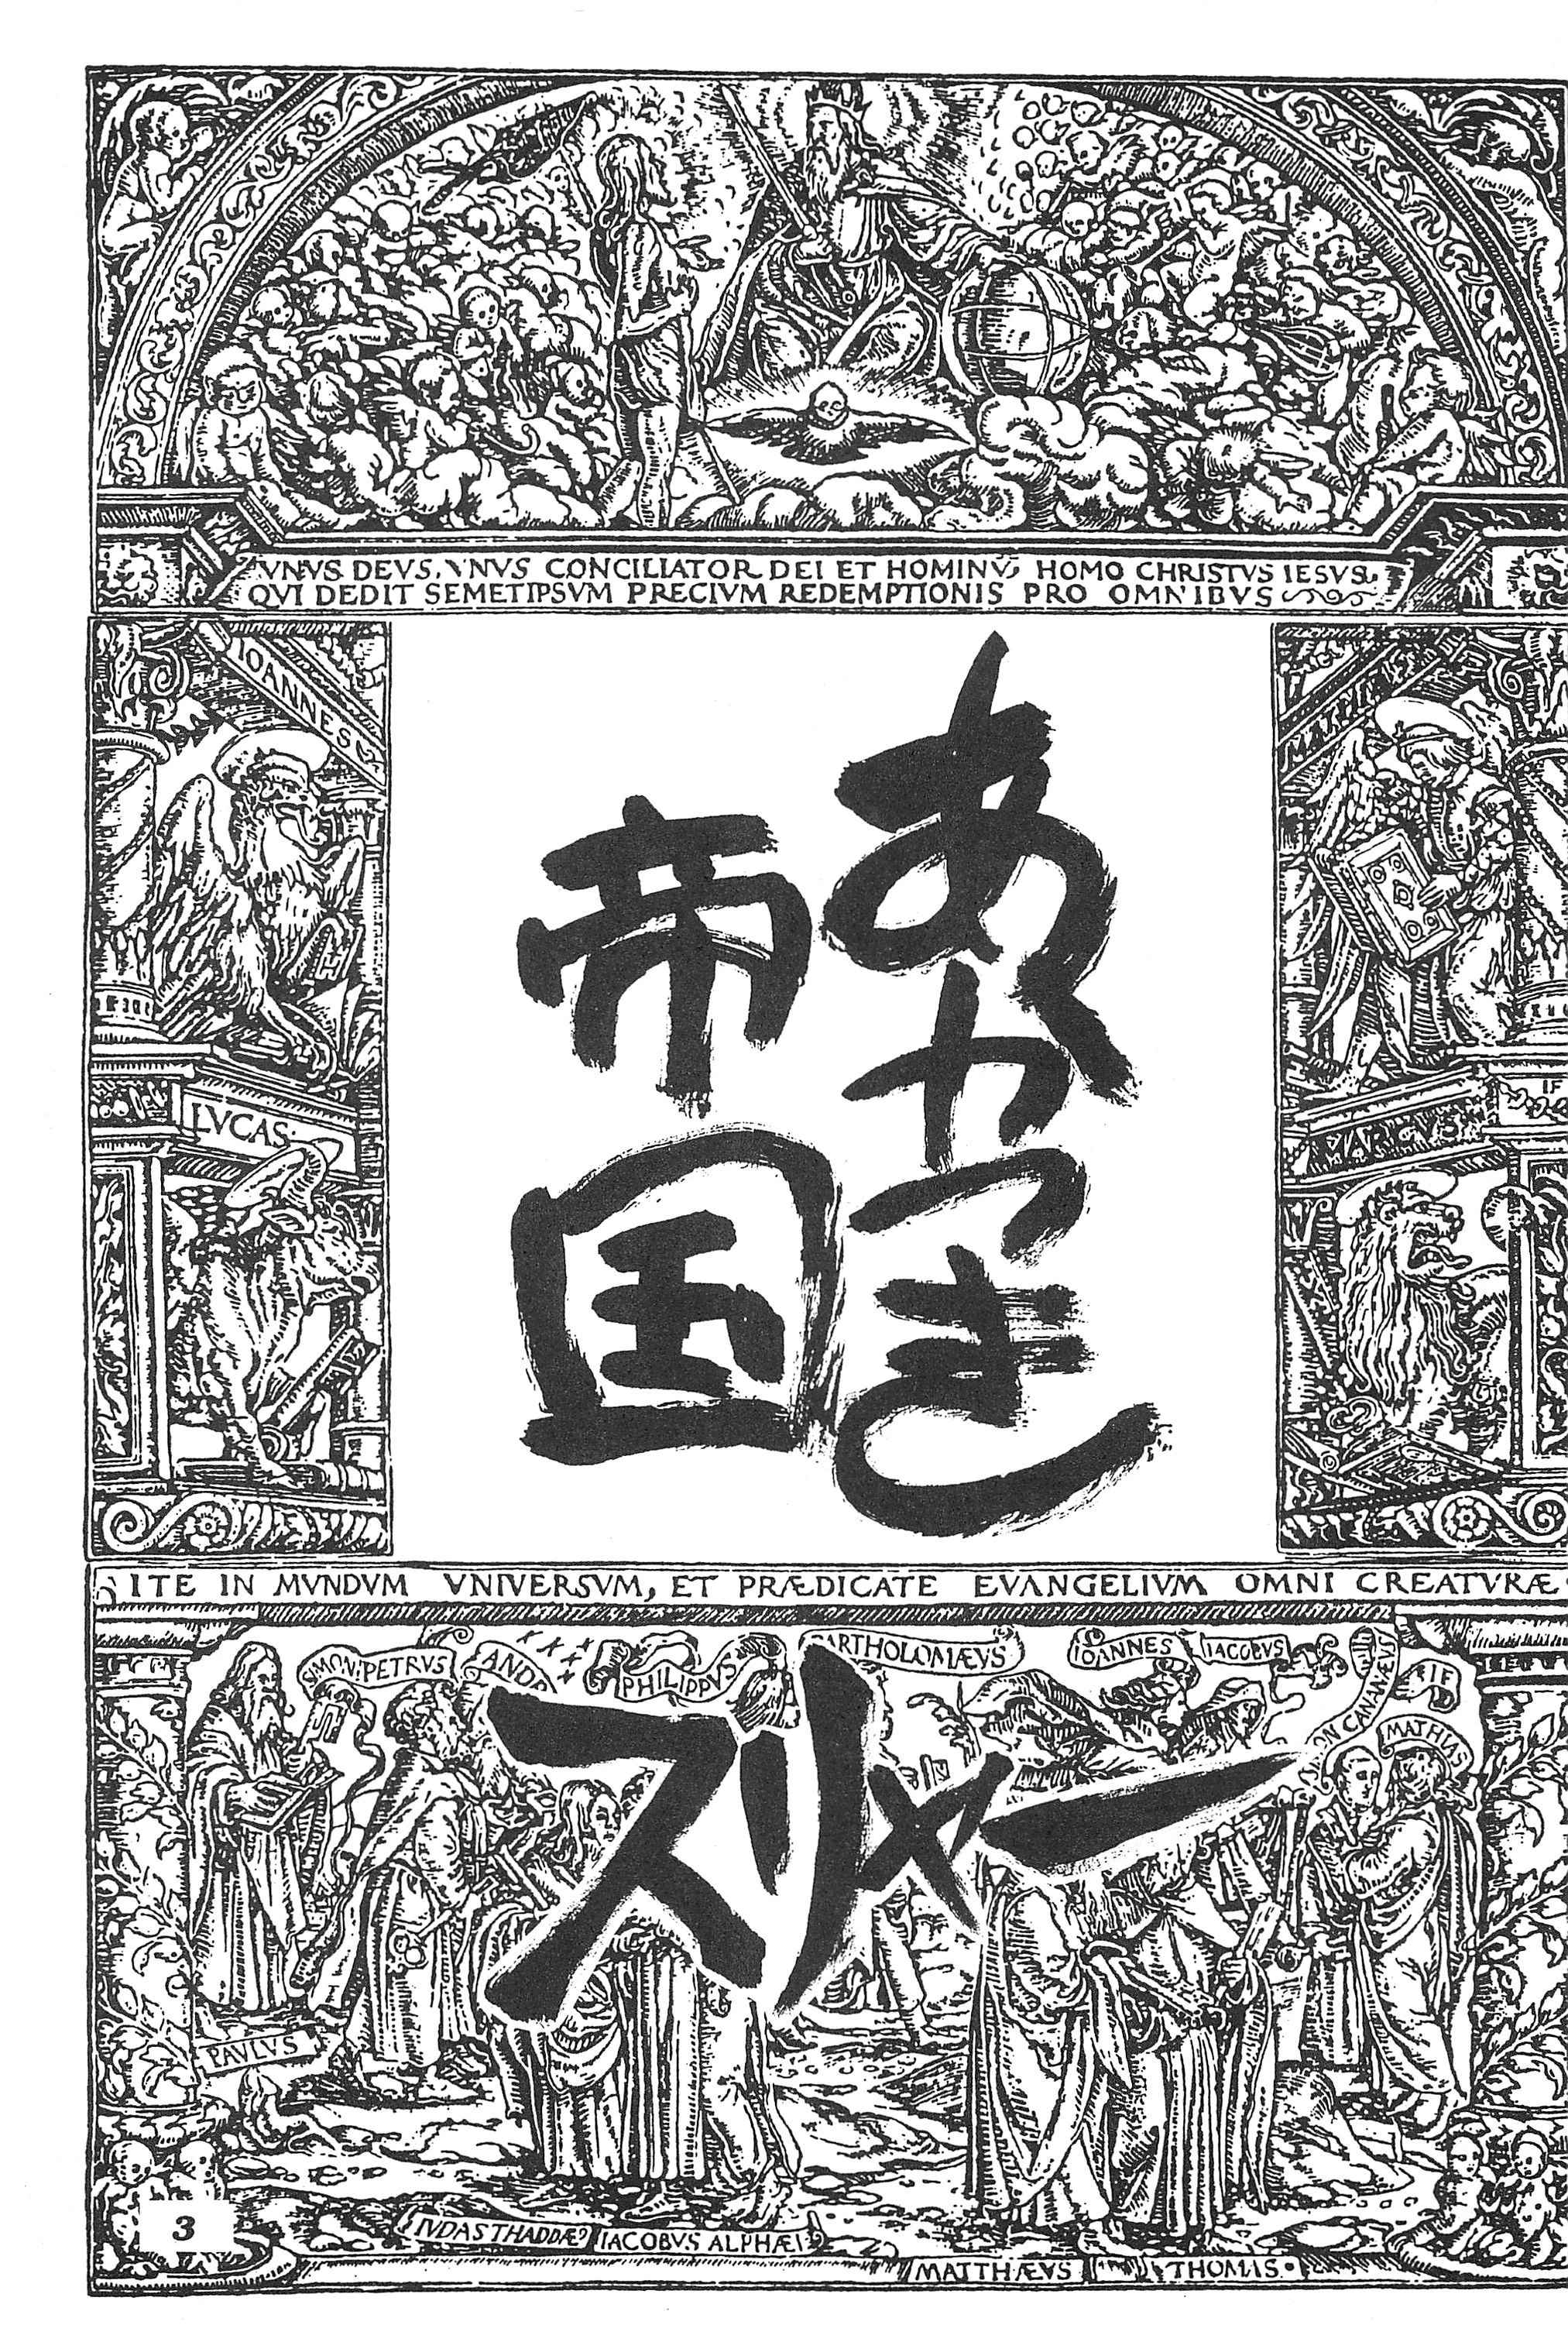 VNVS DEVS, VNVS CONCILIATOR DEI ET HOMINV, HOMO CHRISTVS IESVS
QVI DEDIT SEMETIPSVM PRECIVM REDEMPTIONIS PRO OMNIBVS
IOANNES
MATH
あかつき
帝国
LVCAS
MARCVS
IF
ITE IN MVNDVM VNIVERSVM, ET PRÆDICATE EVANGELIVM OMNI CREATVRÆ
SIMON PETRVS
ANDR
PHILIPPVS
BARTHOLOMÆVS
IOANNES
IACOBVS
ON CANANÆVS
IF
MATHIAS
スリャー
PAVLVS
3
IVDAS THADDÆ
IACOBVS ALPHÆI
MATTHÆVS
THOMAS